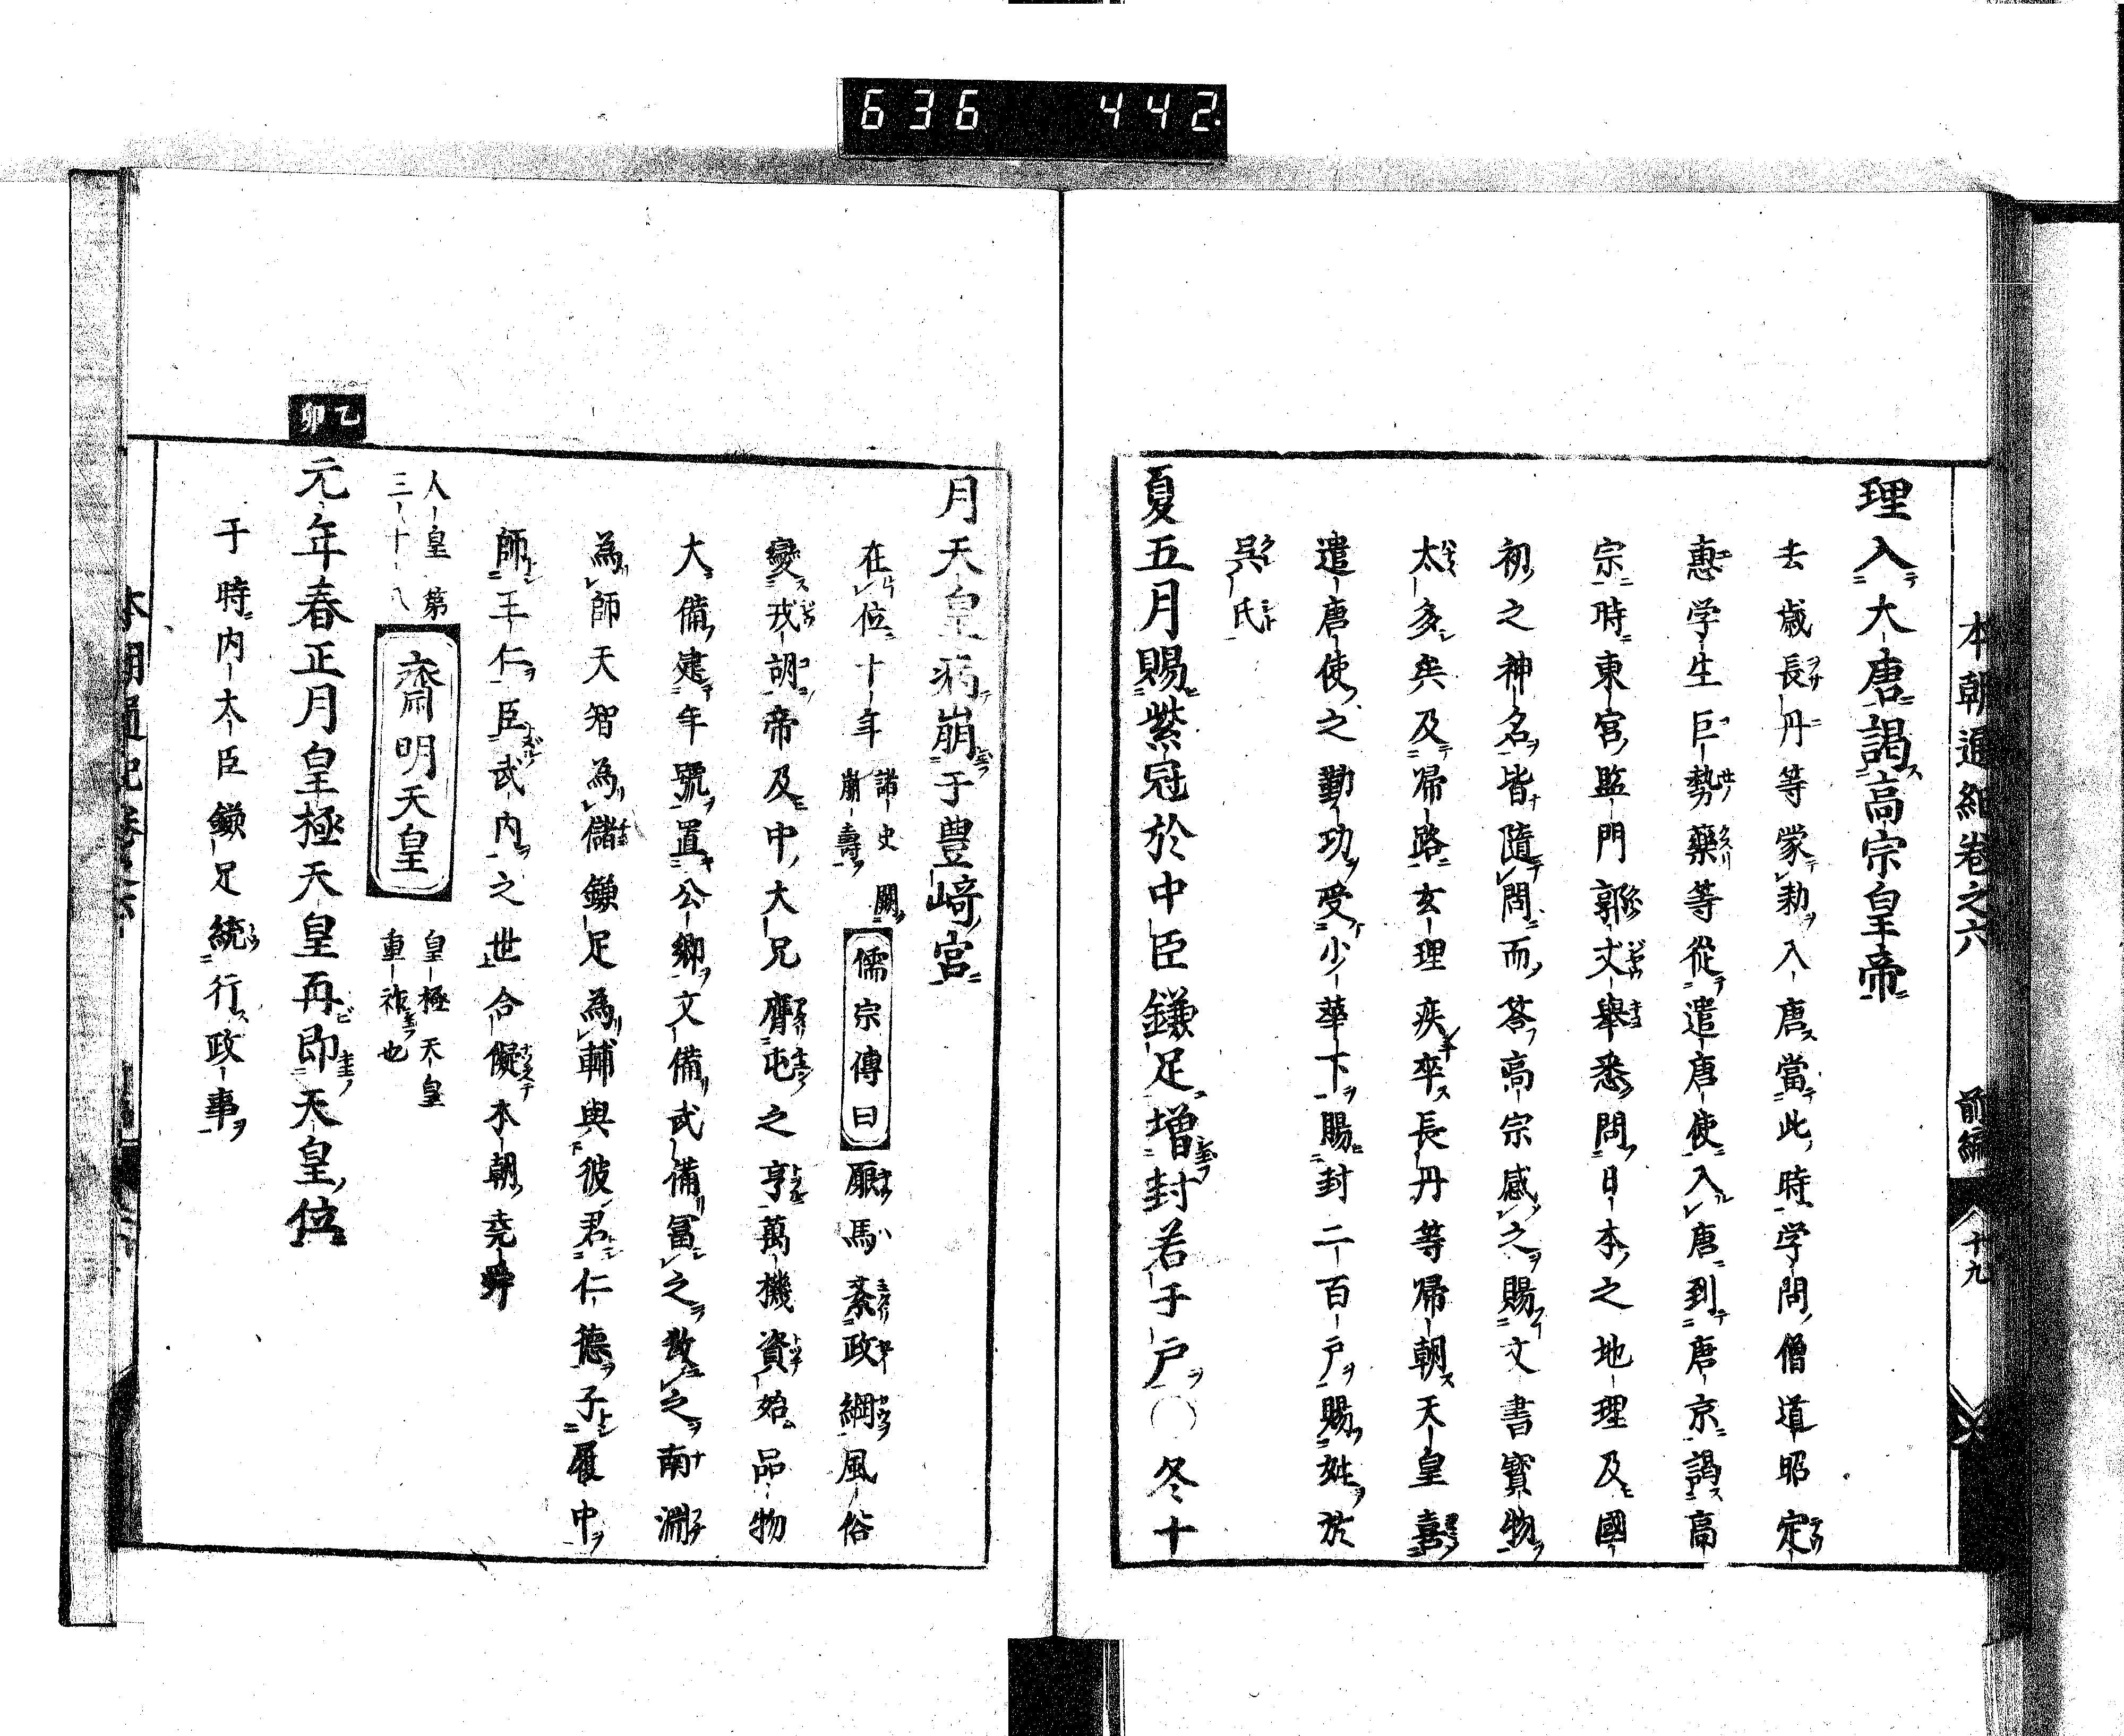 636 442
本朝通紀巻之六 前編 十九
理入大唐謁高宗皇帝
去歳長丹等蒙勅入唐當此時学問僧道昭定
惠学生巨勢藥等從遣唐使入唐到唐京謁高
宗時東宮監門郭丈舉悉問日本之地理及國
初之神名皆隨問而答高宗感之賜文書寳物
太多矣及帰路玄理疾卒長丹等帰朝天皇喜
遣唐使之勤功受少華下賜封二百戸賜姓於
呉氏
夏五月賜紫冠於中臣鎌足増封若干戸〇冬十
月天皇病崩于豊﨑宮
在位十年
諸史闕
崩壽
儒宗傳曰
厩馬紊政綱風俗
變戎胡帝及中大兄膺屯之亨萬機資始品物
大備建年號置公卿文備武備冨之教之南淵
為師天智為儲鎌足為輔與彼君仁德子履中
師王仁臣武内之世合儗本朝堯舜
人皇第
三十八
齋明天皇
皇極天皇
重祚也
乙卯
元年春正月皇極天皇再即天皇位
于時内大臣鎌足統行政事